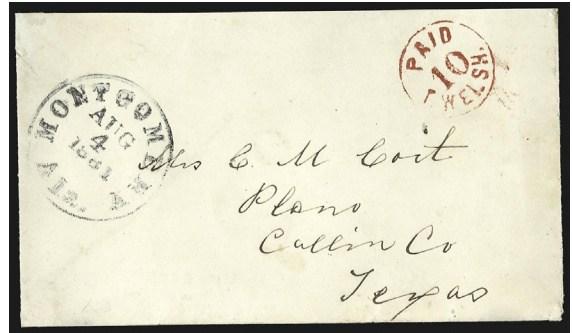 MONTGOMERY
ALA.
AUG
4
1861
PAID
10
T. WELSH.
Mrs C M Coit
Plano
Collin Co
Texas